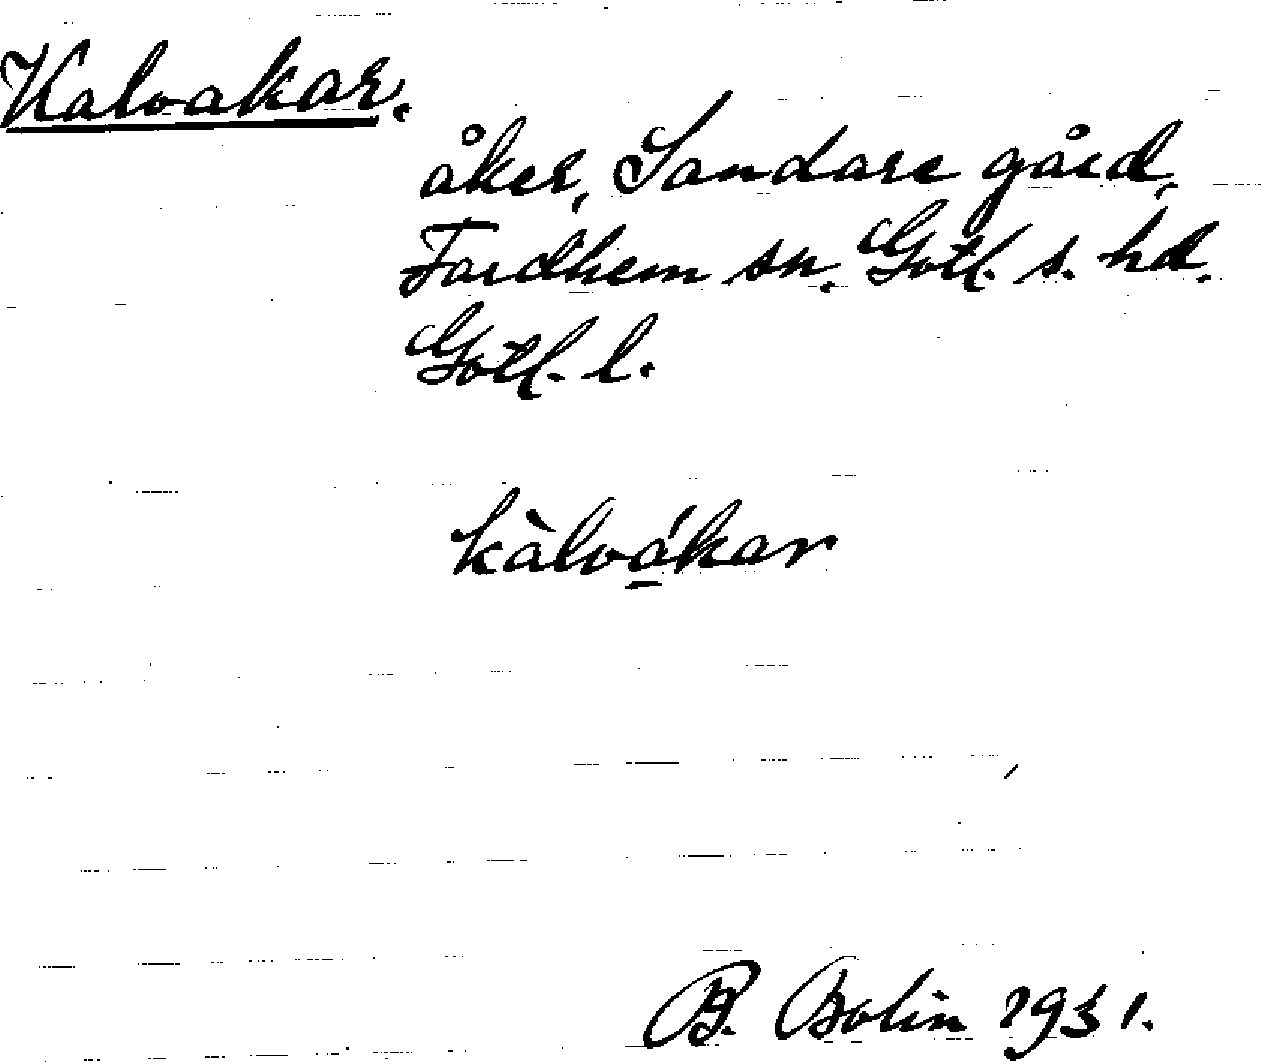 Kalvakar.
åker, Sandare gård,
Fardhem sn. Gotl. s. hd.
Gotl. l.
kàlvá̱kar
B. Bolin 1931.